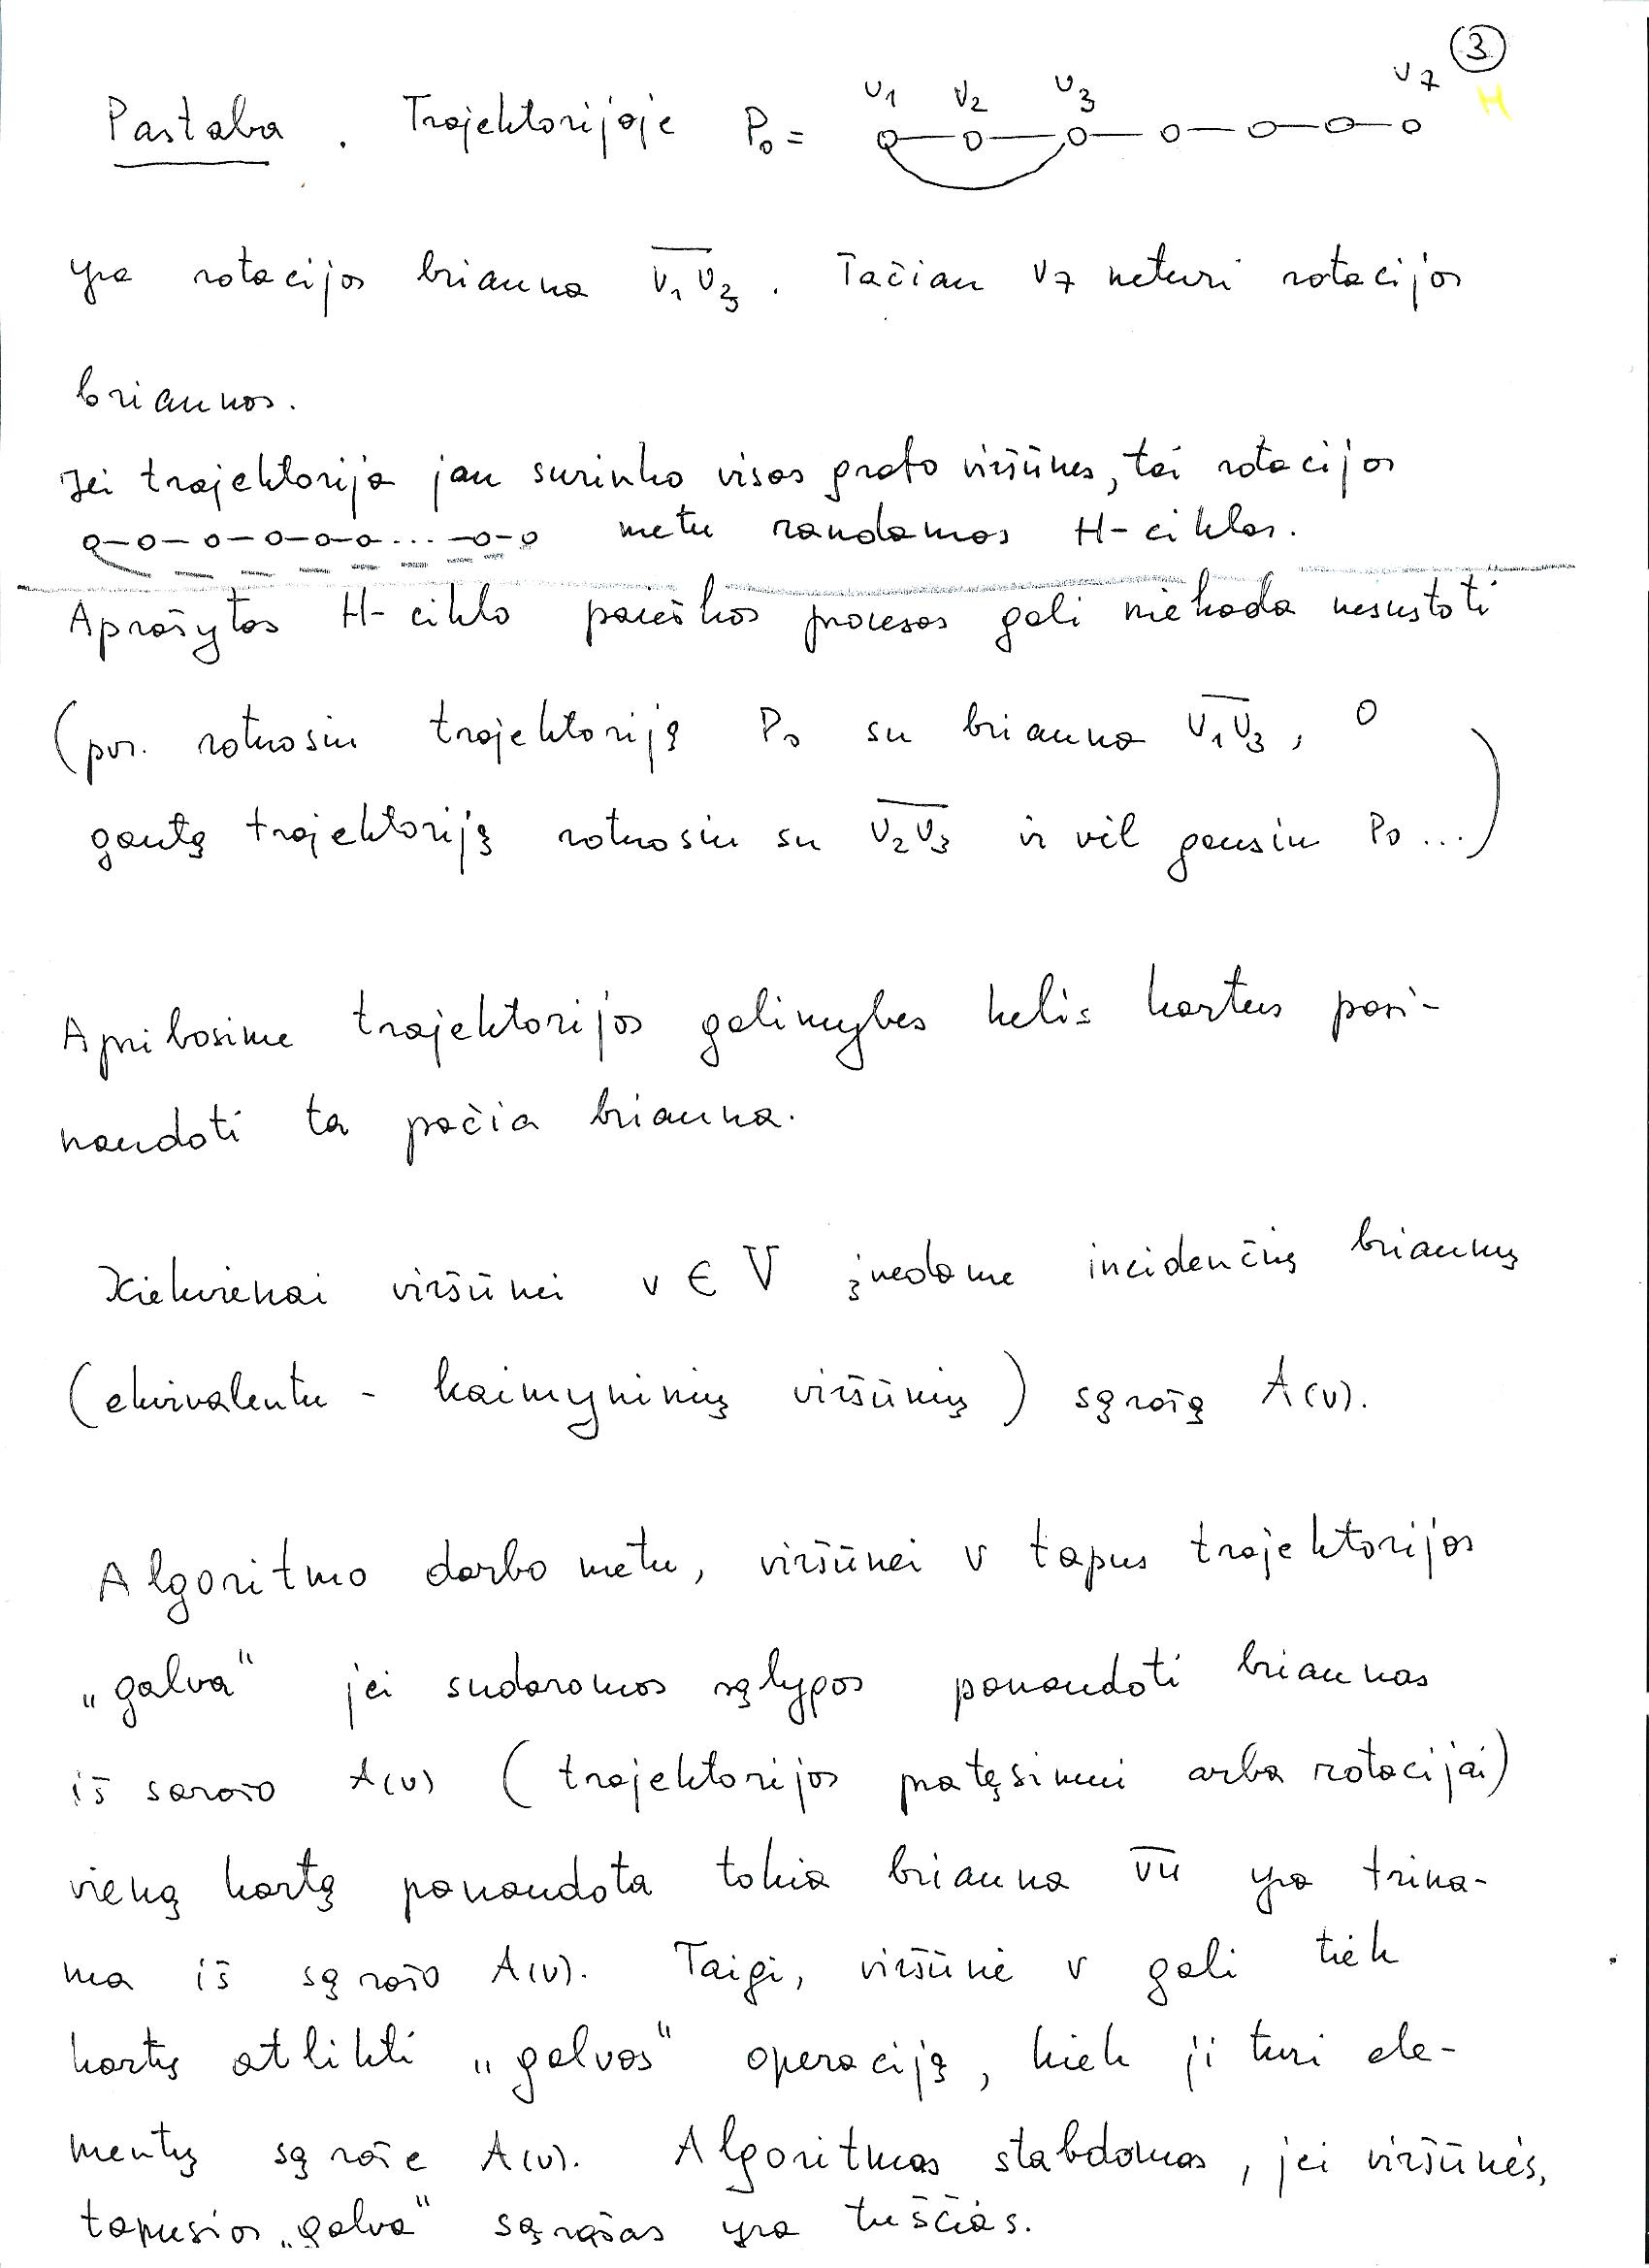 ③
H
Pastaba. Trajektorijoje P₀ = v₁ v₂ v₃ v₇
yra rotacijos briauna v₁v₃. Tačiau v₇ neturi rotacijos
briaunos.
Jei trajektorija jau surinko visas grafo viršūnes, tai rotacijos
metu randamas H-ciklas.
Aprašytas H-ciklo paieškos procesas gali niekada nesustoti
(pvz. rotuosiu trajektoriją P₀ su briauna v₁v₃, o
gautą trajektoriją rotuosiu su v₂v₃ ir vėl gausiu P₀ ...)
Apribosime trajektorijos galimybes kelis kartus pasi-
naudoti ta pačia briauna.
Kiekvienai viršūnei v ∈ V įvedame incidenčių briaunų
(ekvivalentu - kaimyninių viršūnių) sąrašą A(v).
Algoritmo darbo metu, viršūnei v tapus trajektorijos
„galva“ jei sudaromos sąlypos panaudoti briaunas
iš sarašo A(v) (trajektorijos pratęsimui arba rotacijai)
vieną kartą panaudota tokia briauna vu yra trina-
ma iš sąrašo A(v). Taigi, viršūnė v gali tiek
kartų atlikti „galvos“ operaciją, kiek ji turi ele-
mentų sąraše A(v). Algoritmas stabdomas, jei viršūnės,
tapusios „galva“ sąrąšas yra tuščias.